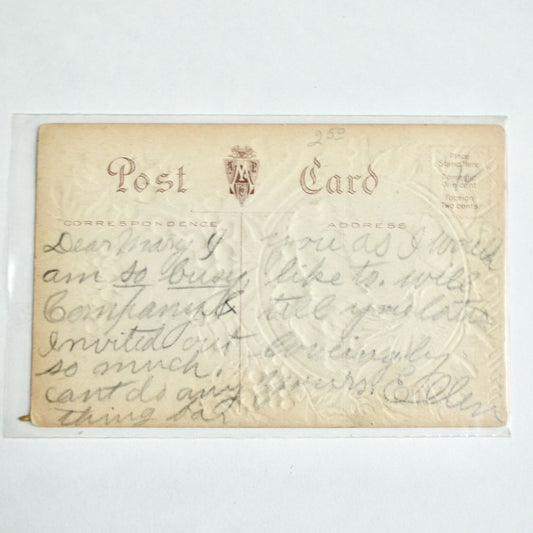 2 50
Post Card
Place
Stamp Here
Domestic
One cent
Foreign
Two cents
CORRESPONDENCE
ADDRESS
Dear Mary I
am so busy
Company &
Invited out
so much.
cant do any
thing for
you as I would
like to. will
tell you later
Lovingly
yours Ellen